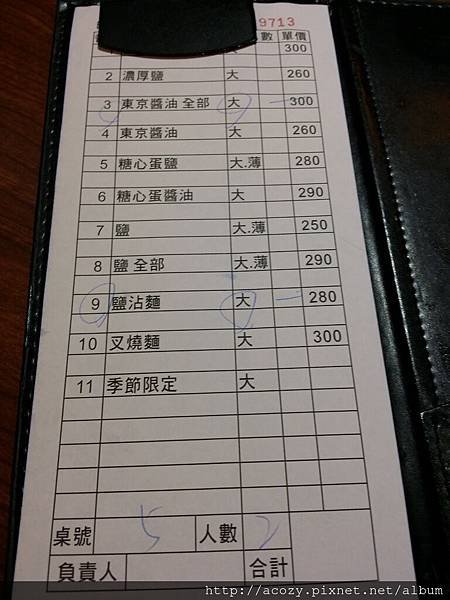 9713
數 單價
300
2 濃厚鹽 大 260
3 東京醬油 全部 大 一 300
4 東京醬油 大 260
5 糖心蛋鹽 大.薄 280
6 糖心蛋醬油 大 290
7 鹽 大.薄 250
8 鹽 全部 大.薄 290
9 鹽沾麵 大 一 280
10 叉燒麵 大 300
11 季節限定 大
桌號 5 人數 2
負責人 合計
http://acozy.pixnet.net/album